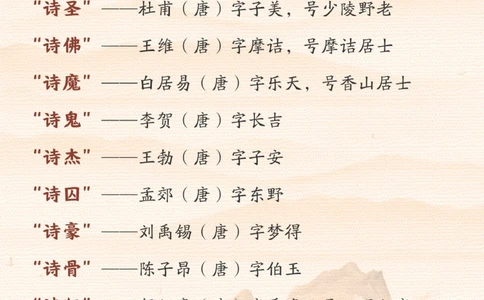 “诗圣”——杜甫（唐）字子美，号少陵野老
“诗佛”——王维（唐）字摩诘，号摩诘居士
“诗魔”——白居易（唐）字乐天，号香山居士
“诗鬼”——李贺（唐）字长吉
“诗杰”——王勃（唐）字子安
“诗囚”——孟郊（唐）字东野
“诗豪”——刘禹锡（唐）字梦得
“诗骨”——陈子昂（唐）字伯玉